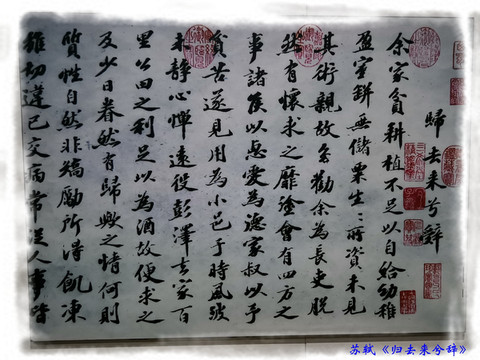 歸去來兮辭
余家貧耕植不足以自給幼稚
盈室缾無儲粟生〻所資未見
其術親故多勸余為長吏脫
然有懷求之靡塗會有四方之
事諸侯以惠愛為德家叔以予
貧苦遂見用為小邑于時風波
未靜心憚遠役彭澤去家百
里公田之利足以為酒故便求之
及少日眷然有歸歟之情何則
質性自然非矯勵所得飢凍
雖切違已交病常從人事皆
苏轼《归去来兮辞》